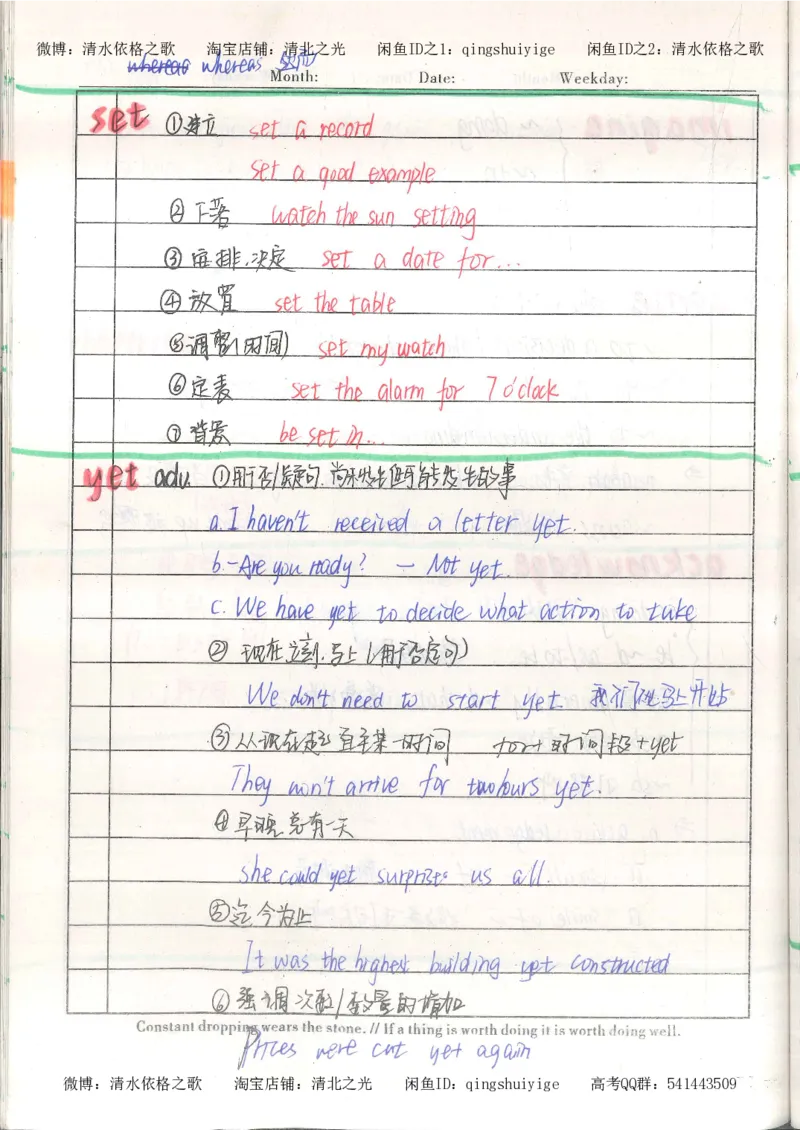 微博：清水依格之歌 淘宝店铺：清北之光 闲鱼ID之1：qingshuiyige 闲鱼ID之2：清水依格之歌
whereas whereas
Month: Date: Weekday:
set ①建立 set a record
set a good example
②下落 watch the sun setting
③安排、决定 set a date for...
④放置 set the table
⑤调整(时间) set my watch
⑥定表 set the alarm for 7 o'clock
⑦背景 be set in...
yet adv. ①用于否/疑问句.尚未发生但可能发生的事
a. I haven't received a letter yet.
b. -Are you ready? — Not yet.
c. We have yet to decide what action to take
② 现在立刻.马上(用于否定句)
We don't need to start yet. 我们不必马上开始
③从现在起 直至某一时间 for+时间段+yet
They won't arrive for two hours yet.
④早晚 总有一天
she could yet surprise us all.
⑤迄今为止
It was the highest building yet constructed
⑥强调次数/数量的增加
Constant dropping wears the stone. // If a thing is worth doing it is worth doing well.
Prices were cut yet again
微博：清水依格之歌 淘宝店铺：清北之光 闲鱼ID：qingshuiyige 高考QQ群：541443509